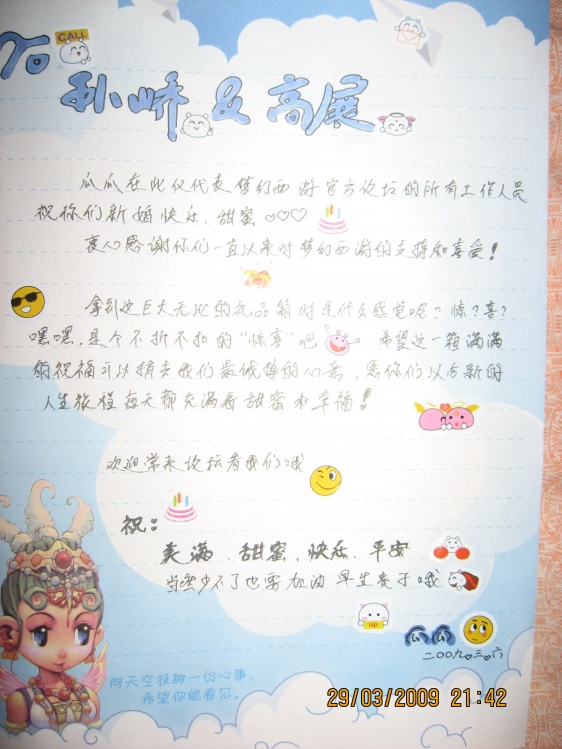 To
CALL
孙峤 & 高展
瓜瓜在此仅代表梦幻西游官方论坛的所有工作人员
祝你们新婚快乐、甜蜜♡♡♡
衷心感谢你们一直以来对梦幻西游的支持和喜爱!
拿到这巨大无比的礼品箱时是什么感觉呢?惊?喜?
嘿嘿,是个不折不扣的“惊喜”吧 希望这一箱满满
的祝福可以捎去我们最诚挚的心意,愿你们以后新的
人生旅程每天都充满着甜蜜和幸福!
欢迎常来论坛看我们哦
祝:
美满、甜蜜、快乐、平安
当然少不了也要加油早生贵子哦
up
瓜瓜
二〇〇九.三.六
向天空投掷一份心事,
希望你能看见
29/03/2009 21:42